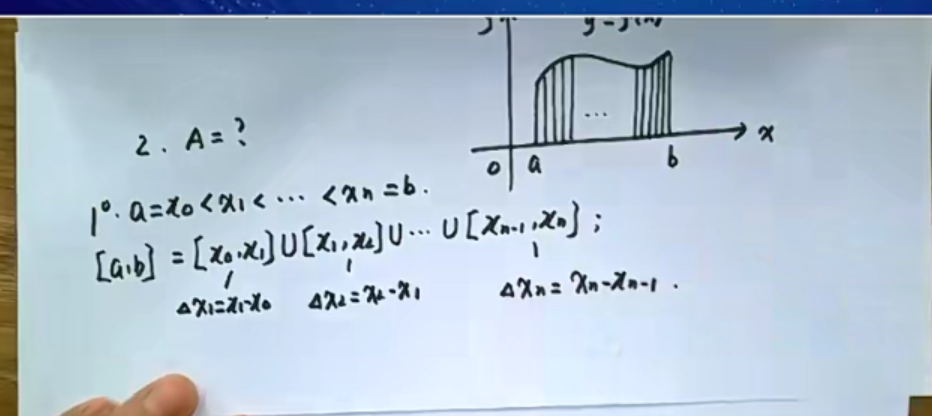 2. A=?
0 a b x
...
1°. a=x₀<x₁<⋯<xₙ=b.
[a,b] = [x₀,x₁]∪[x₁,x₂]∪⋯∪[xₙ₋₁,xₙ];
Δx₁=x₁-x₀ Δx₂=x₂-x₁ Δxₙ=xₙ-xₙ₋₁.